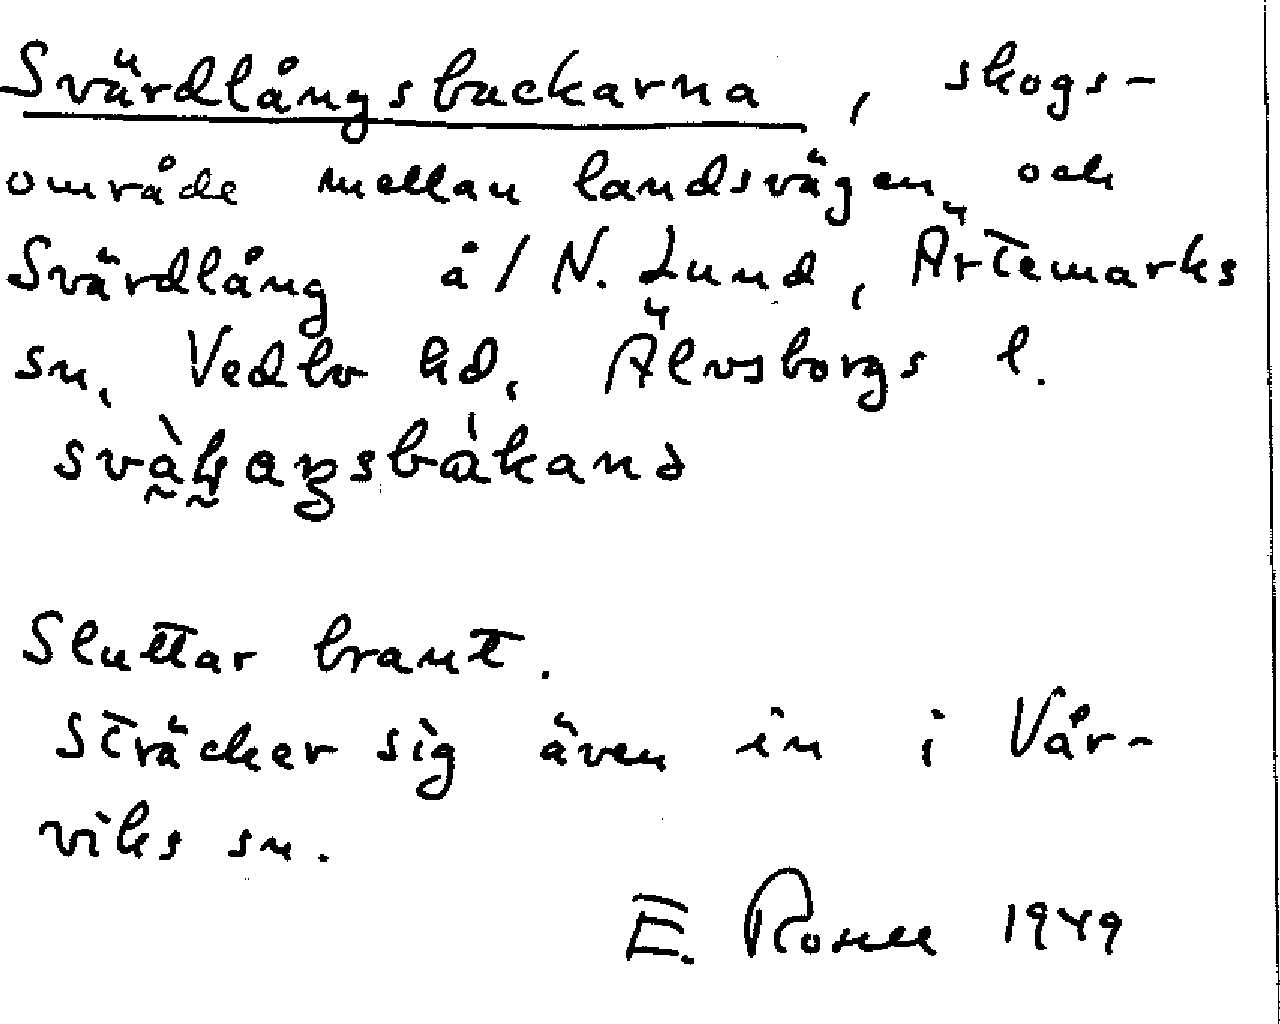 Svärdlångsbackarna, skogs-
område mellan landsvägen och
Svärdlång å/ N. Lund, Ärtemarks
sn, Vedbo hd, Älvsborgs l.
Sluttar brant.
Sträcker sig även in i Vår-
viks sn.
E. Rosell 1949